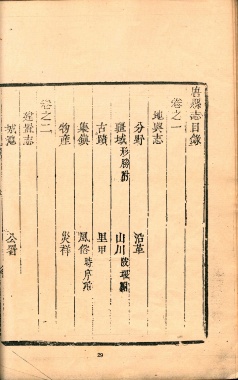 唐縣志目錄
卷之一
地輿志
分野 沿革
疆域形勝附 山川陂堰附
古蹟 里甲
集鎮 風俗時序附
物產 災祥
卷之二
建置志
城池 公署
29